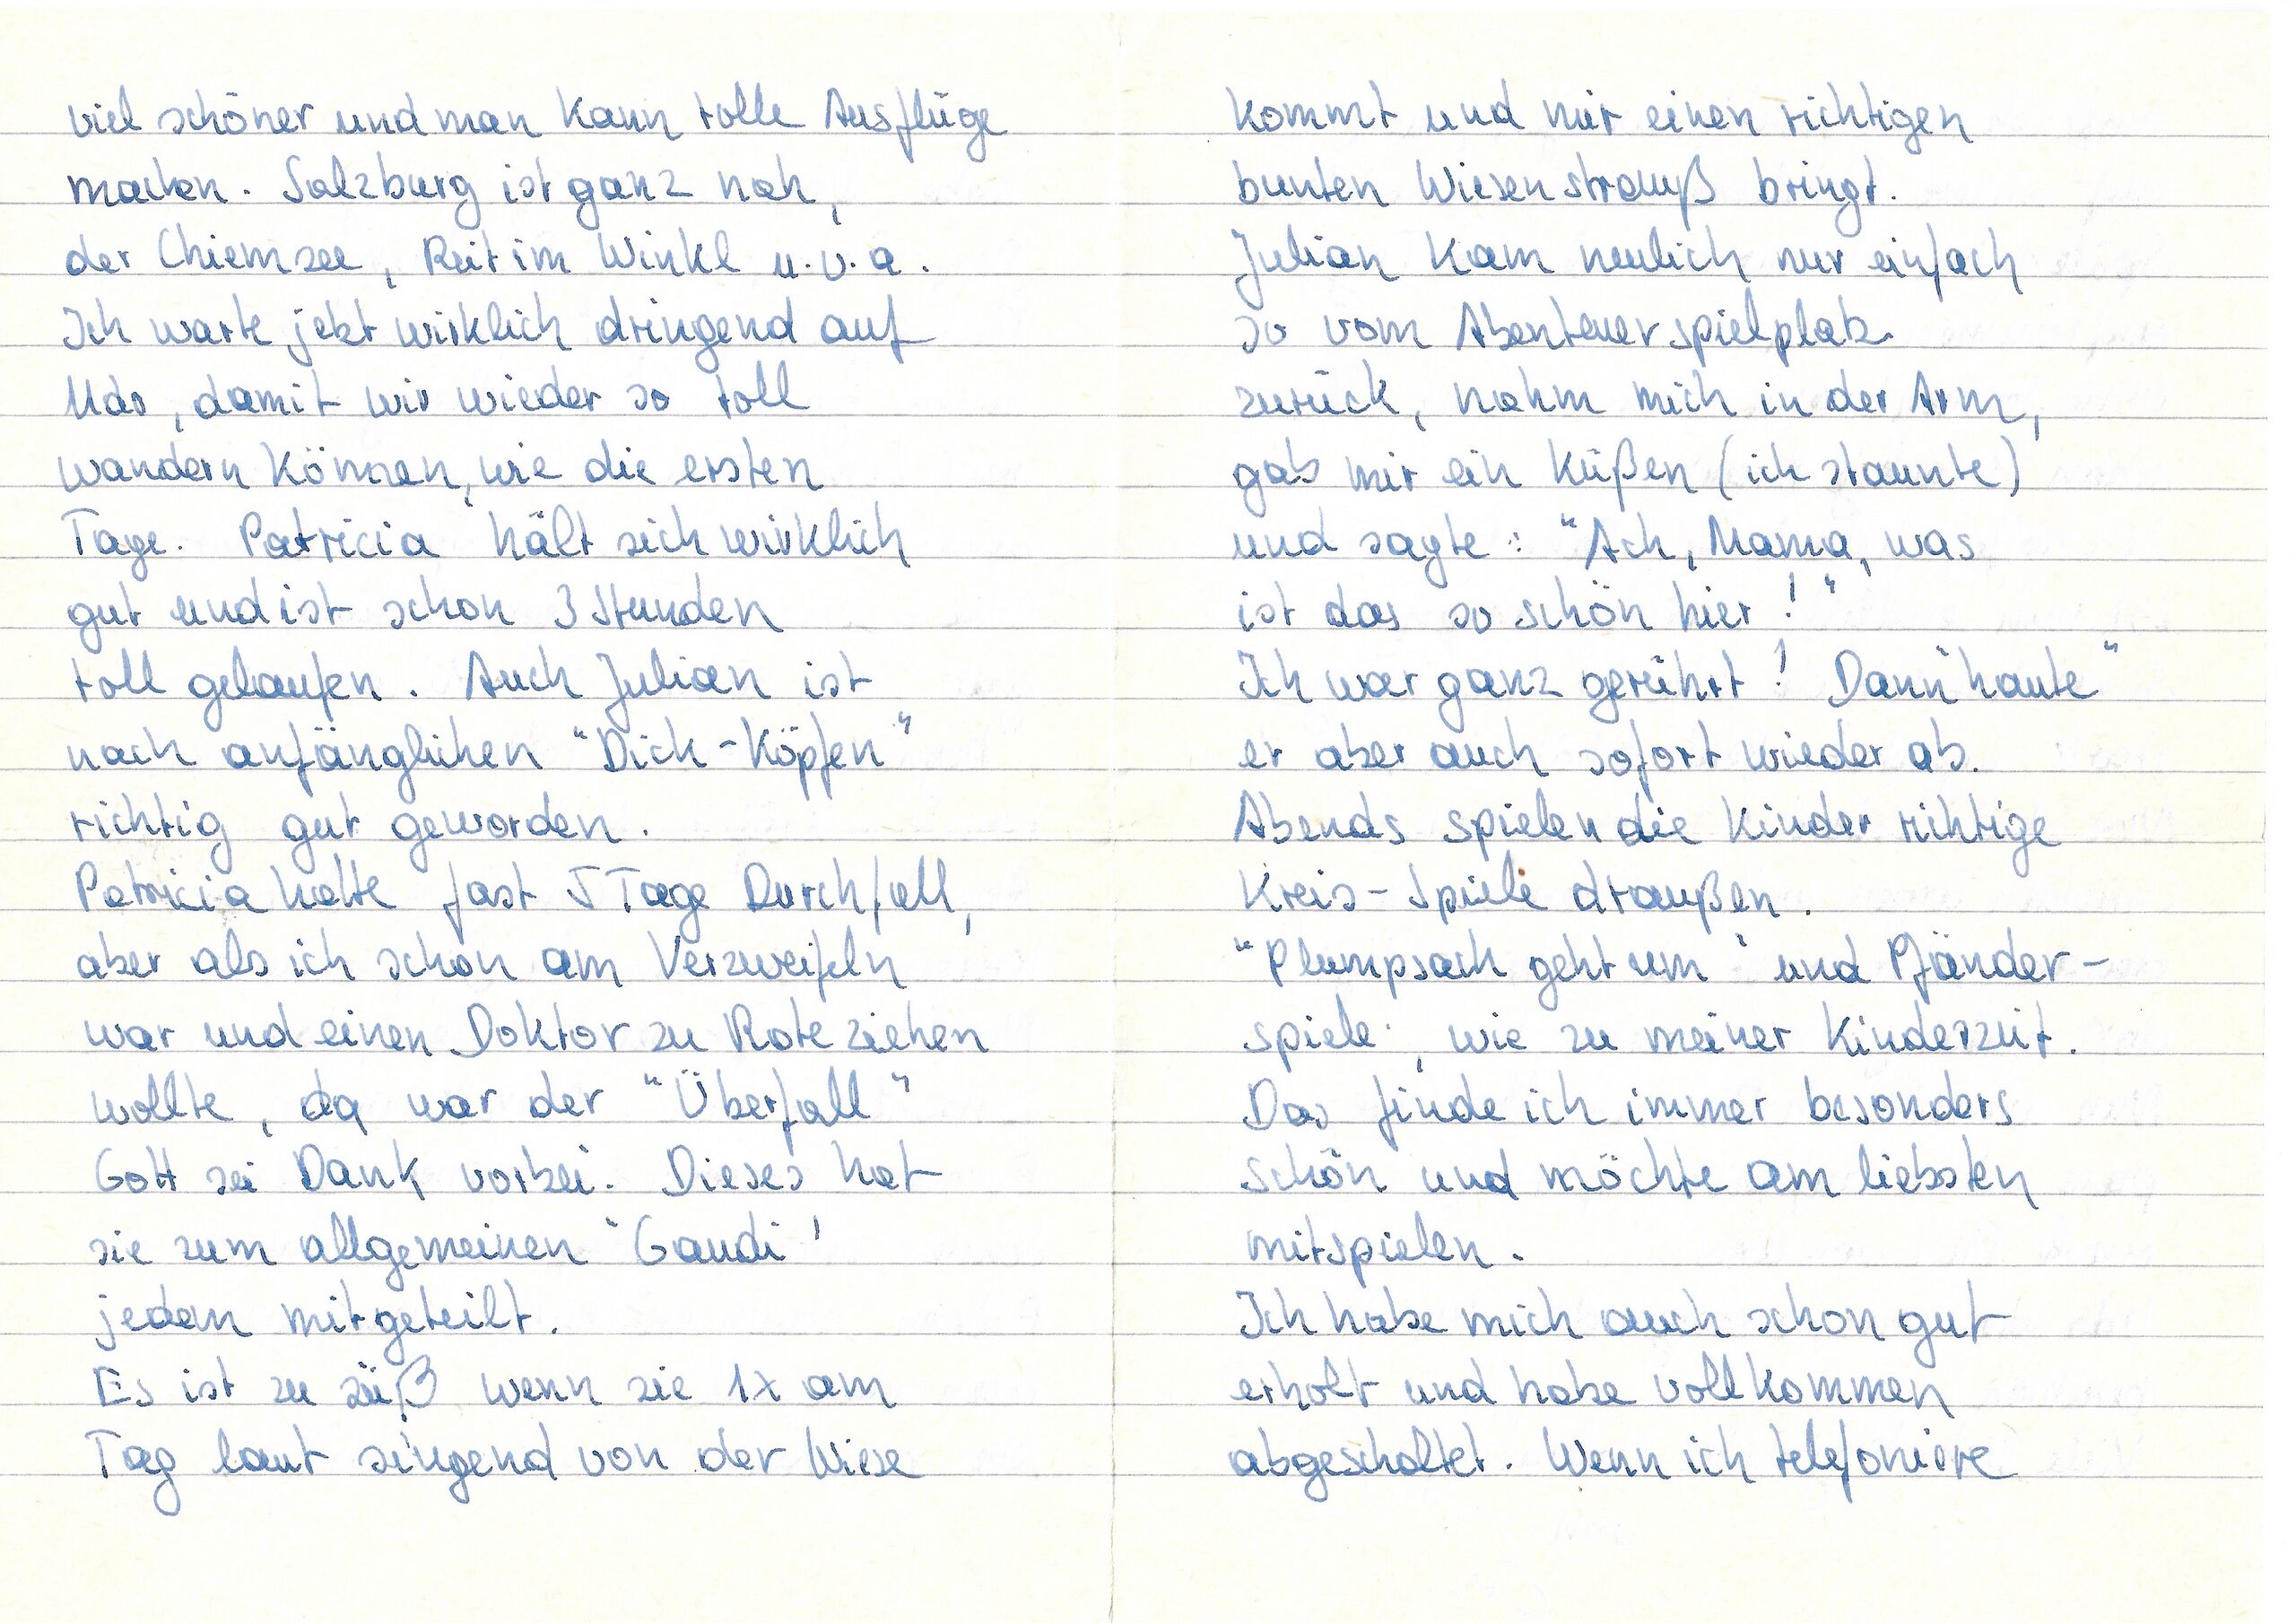 viel schöner und man kann tolle Ausflüge
machen. Salzburg ist ganz nah,
der Chiemsee, Reit im Winkl u.v.a.
Ich warte jetzt wirklich dringend auf
Udo, damit wir wieder so toll
wandern können, wie die ersten
Tage. Patricia hält sich wirklich
gut und ist schon 3 Stunden
toll gelaufen. Auch Julian ist
nach anfänglichen "Dick-Köpfen"
richtig gut geworden.
Patricia hatte fast 5 Tage Durchfall,
aber als ich schon am Verzweifeln
war und einen Doktor zu Rate ziehen
wollte, da war der "Überfall"
Gott sei Dank vorbei. Dieses hat
sie zum allgemeinen "Gaudi"
jedem mitgeteilt.
Es ist zu süß wenn sie 1x am
Tag laut singend von der Wiese
kommt und mir einen richtigen
bunten Wiesenstrauß bringt.
Julian kam neulich nur einfach
so vom Abenteuerspielplatz
zurück, nahm mich in der Arm,
gab mir ein Küßen (ich staunte)
und sagte: "Ach, Mama, was
ist das so schön hier!"
Ich war ganz gerührt! Dann "haute"
er aber auch sofort wieder ab.
Abends spielen die Kinder rihtige
Kreis-Spiele draußen.
"Plumpsach geht um" und Pfänder-
spiele, wie zu meiner Kinderzeit.
Das finde ich immer besonders
schön und möchte am liebsten
mitspielen.
Ich habe mich auch schon gut
erholt und habe vollkommen
abgeschaltet. Wenn ich telefoniere